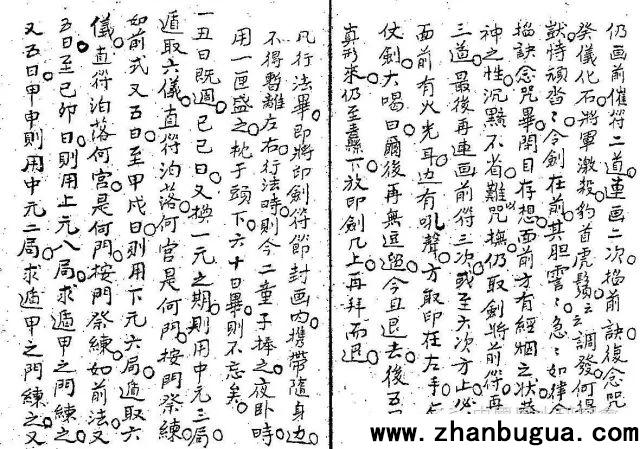 仍画前催符二道連画二次掐前訣復念咒
癸儀化石將軍激殺豹首虎鬚調發何得
恃頑令劍在前其胆雲〻急〻如律令
掐訣念咒畢開目存想面前方有經烟之狀
神之性沉默不省難以咒撫仍取劍將前符再
三道最後再連画前符三次或至六次方止必
面前有火光耳边有吼聲方取印在左手
仗劍大喝曰爾後再無逗遛今且退去後五
真形來仍至纛下放印劍几上再拜而退
凡行法畢即將印劍符節封画内携帶隨身边
不得暫離左右行法時則令二童子捧之夜卧時
用一匣盛之枕于頭下六十日畢則不忘矣
一五日既週己巳日又換一元之期則用中元三局
遁取六儀直符泊落何宮是何門按門祭練
如前式又五日至甲戌日則用下元六局遁取六
儀直符泊落何宮是何門按門祭練如前法又
五日至己卯日則用上元八局求遁甲之門練之
又五日甲申則用中元二局求遁甲之門練之又
www.zhanbugua.com